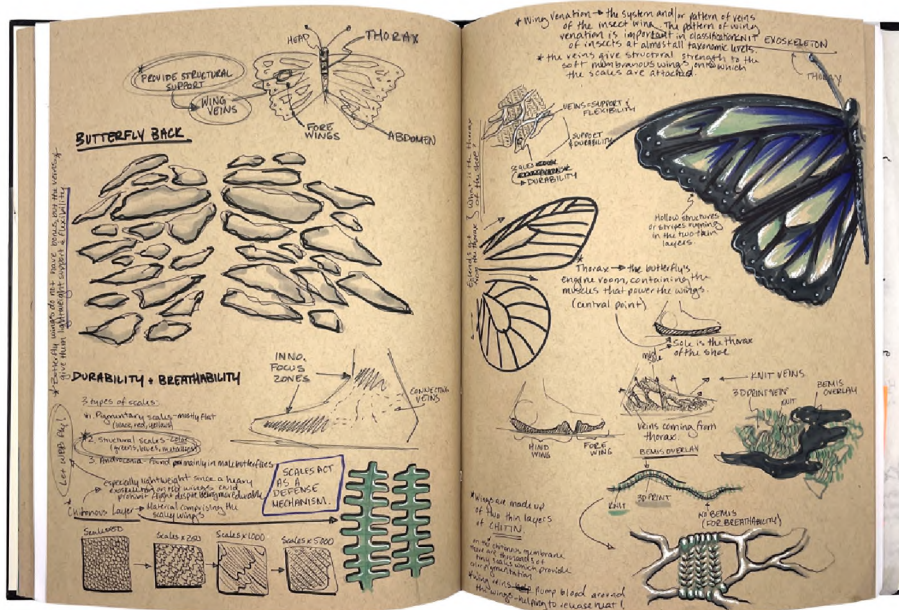 HEAD
THORAX
* PROVIDE STRUCTURAL
SUPPORT
WING
VEINS
FORE
WINGS
ABDOMEN
BUTTERFLY BACK
* Butterfly wings do not have bones, but the veins
give them lightweight support & flexibility
DURABILITY + BREATHABILITY
3 types of scales:
*1. Pigmentary scales - mostly flat
(black, red, yellows)
* 2. Structural scales - color
(greens, blues, metallics)
3. Androconia - found primarily in male butterflies
especially lightweight since a heavy
exoskeleton
Chitinous Layer → Material comprising the
scaly wings
INNO.
FOCUS
ZONES
CONNECTING
VEINS
SCALES ACT
AS A
DEFENSE
MECHANISM.
Scales x50
Scales x250
Scales x1000
Scales x5000
* Wing venation → the system and/or pattern of veins
of the insect wing. The pattern of wing
venation is important in classification
of insects at almost all taxonomic levels.
* the veins give structural strength to the
soft membranous wings onto which
the scales are attached.
KNIT EXOSKELETON
THORAX
VEINS = SUPPORT &
FLEXIBILITY
SUPPORT
& DURABILITY
SCALES
→ DURABILITY
What is the thorax
of the shoe?
Hollow structures
or stripes running
in the two thin
layers
* Thorax → the butterfly's
engine room, containing the
muscles that power the wings.
(central point)
Sole is the thorax
of the shoe
KNIT VEINS
Veins coming from
thorax.
HIND
WING
FORE
WING
3D PRINT
KNIT
BEMIS
OVERLAY
BEMIS OVERLAY
KNIT
3D PRINT
NO BEMIS
(FOR BREATHABILITY)
* Wings are made up
of two thin layers
of CHITIN.
tiny scales which provide
* Wing veins pump blood around
the wings - helping to release heat!